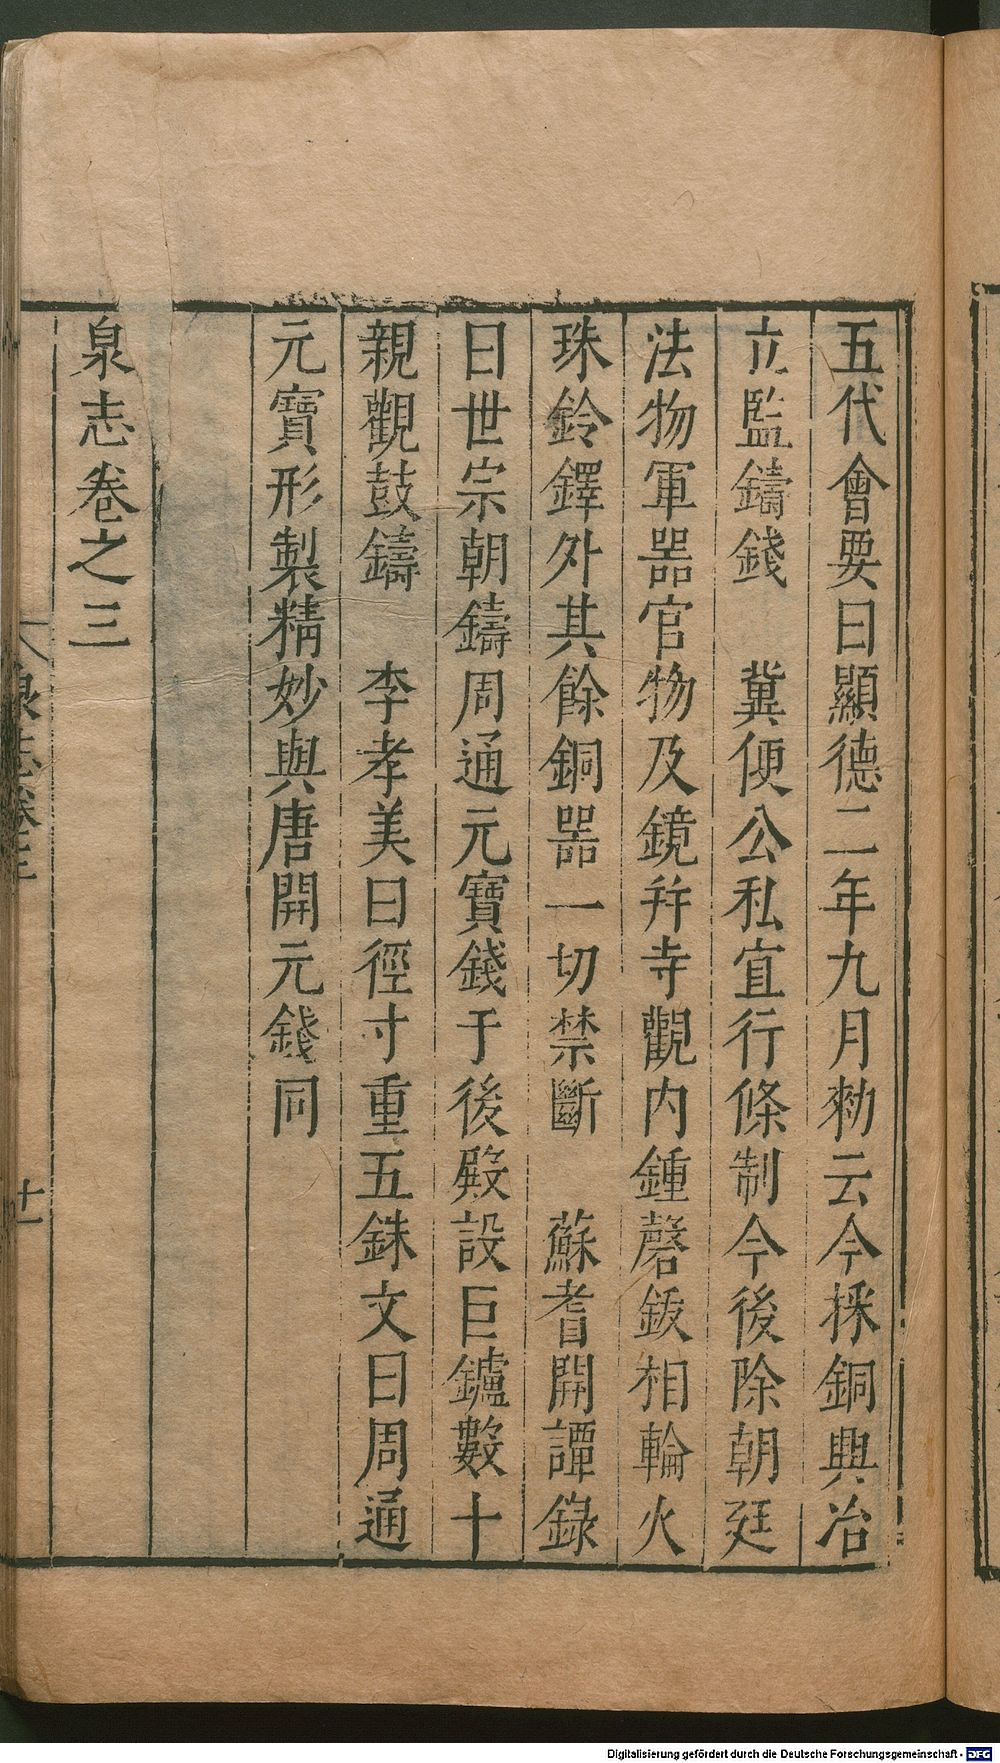 五代會要曰顯德二年九月勑云今採銅興冶
立監鑄錢　冀便公私宜行條制今後除朝廷
法物軍器官物及鏡并寺觀内鍾磬鈸相輪火
珠鈴鐸外其餘銅器一切禁斷　蘇耆開譚錄
曰世宗朝鑄周通元寶錢于後殿設巨鑪數十
親觀鼓鑄　李孝美曰徑寸重五銖文曰周通
元寶形製精妙與唐開元錢同
泉志卷之三
泉志卷三
十一
Digitalisierung gefördert durch die Deutsche Forschungsgemeinschaft - DFG